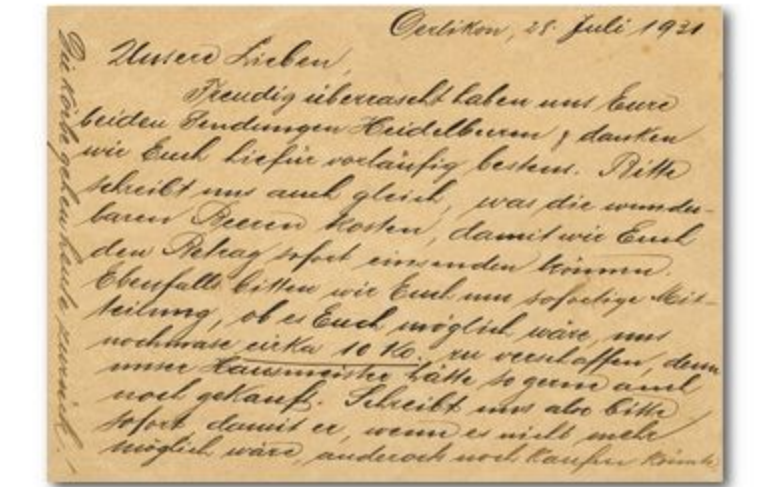 Oerlikon, 28. Juli 1931
Unsere Lieben,
Freudig überrascht haben uns Eure
beiden Sendungen Heidelbeeren & danken
wir Euch hiefür vorläufig bestens. Bitte
schreibt uns auch gleich, was die wunder-
baren Beeren kosten, damit wir Euch
den Betrag sofort einsenden können.
Ebenfalls bitten wir Euch um sofortige Mit-
teilung, ob es Euch möglich wäre, uns
nochmals cirka 10 Ko. zu verschaffen, denn
unser Hausmeister hätte so gerne auch
noch gekauft. Schreibt uns also bitte
sofort, damit er, wenn es nicht mehr
möglich wäre, anderorts noch kaufen könnte
Die Körbe gehen heute zurück!